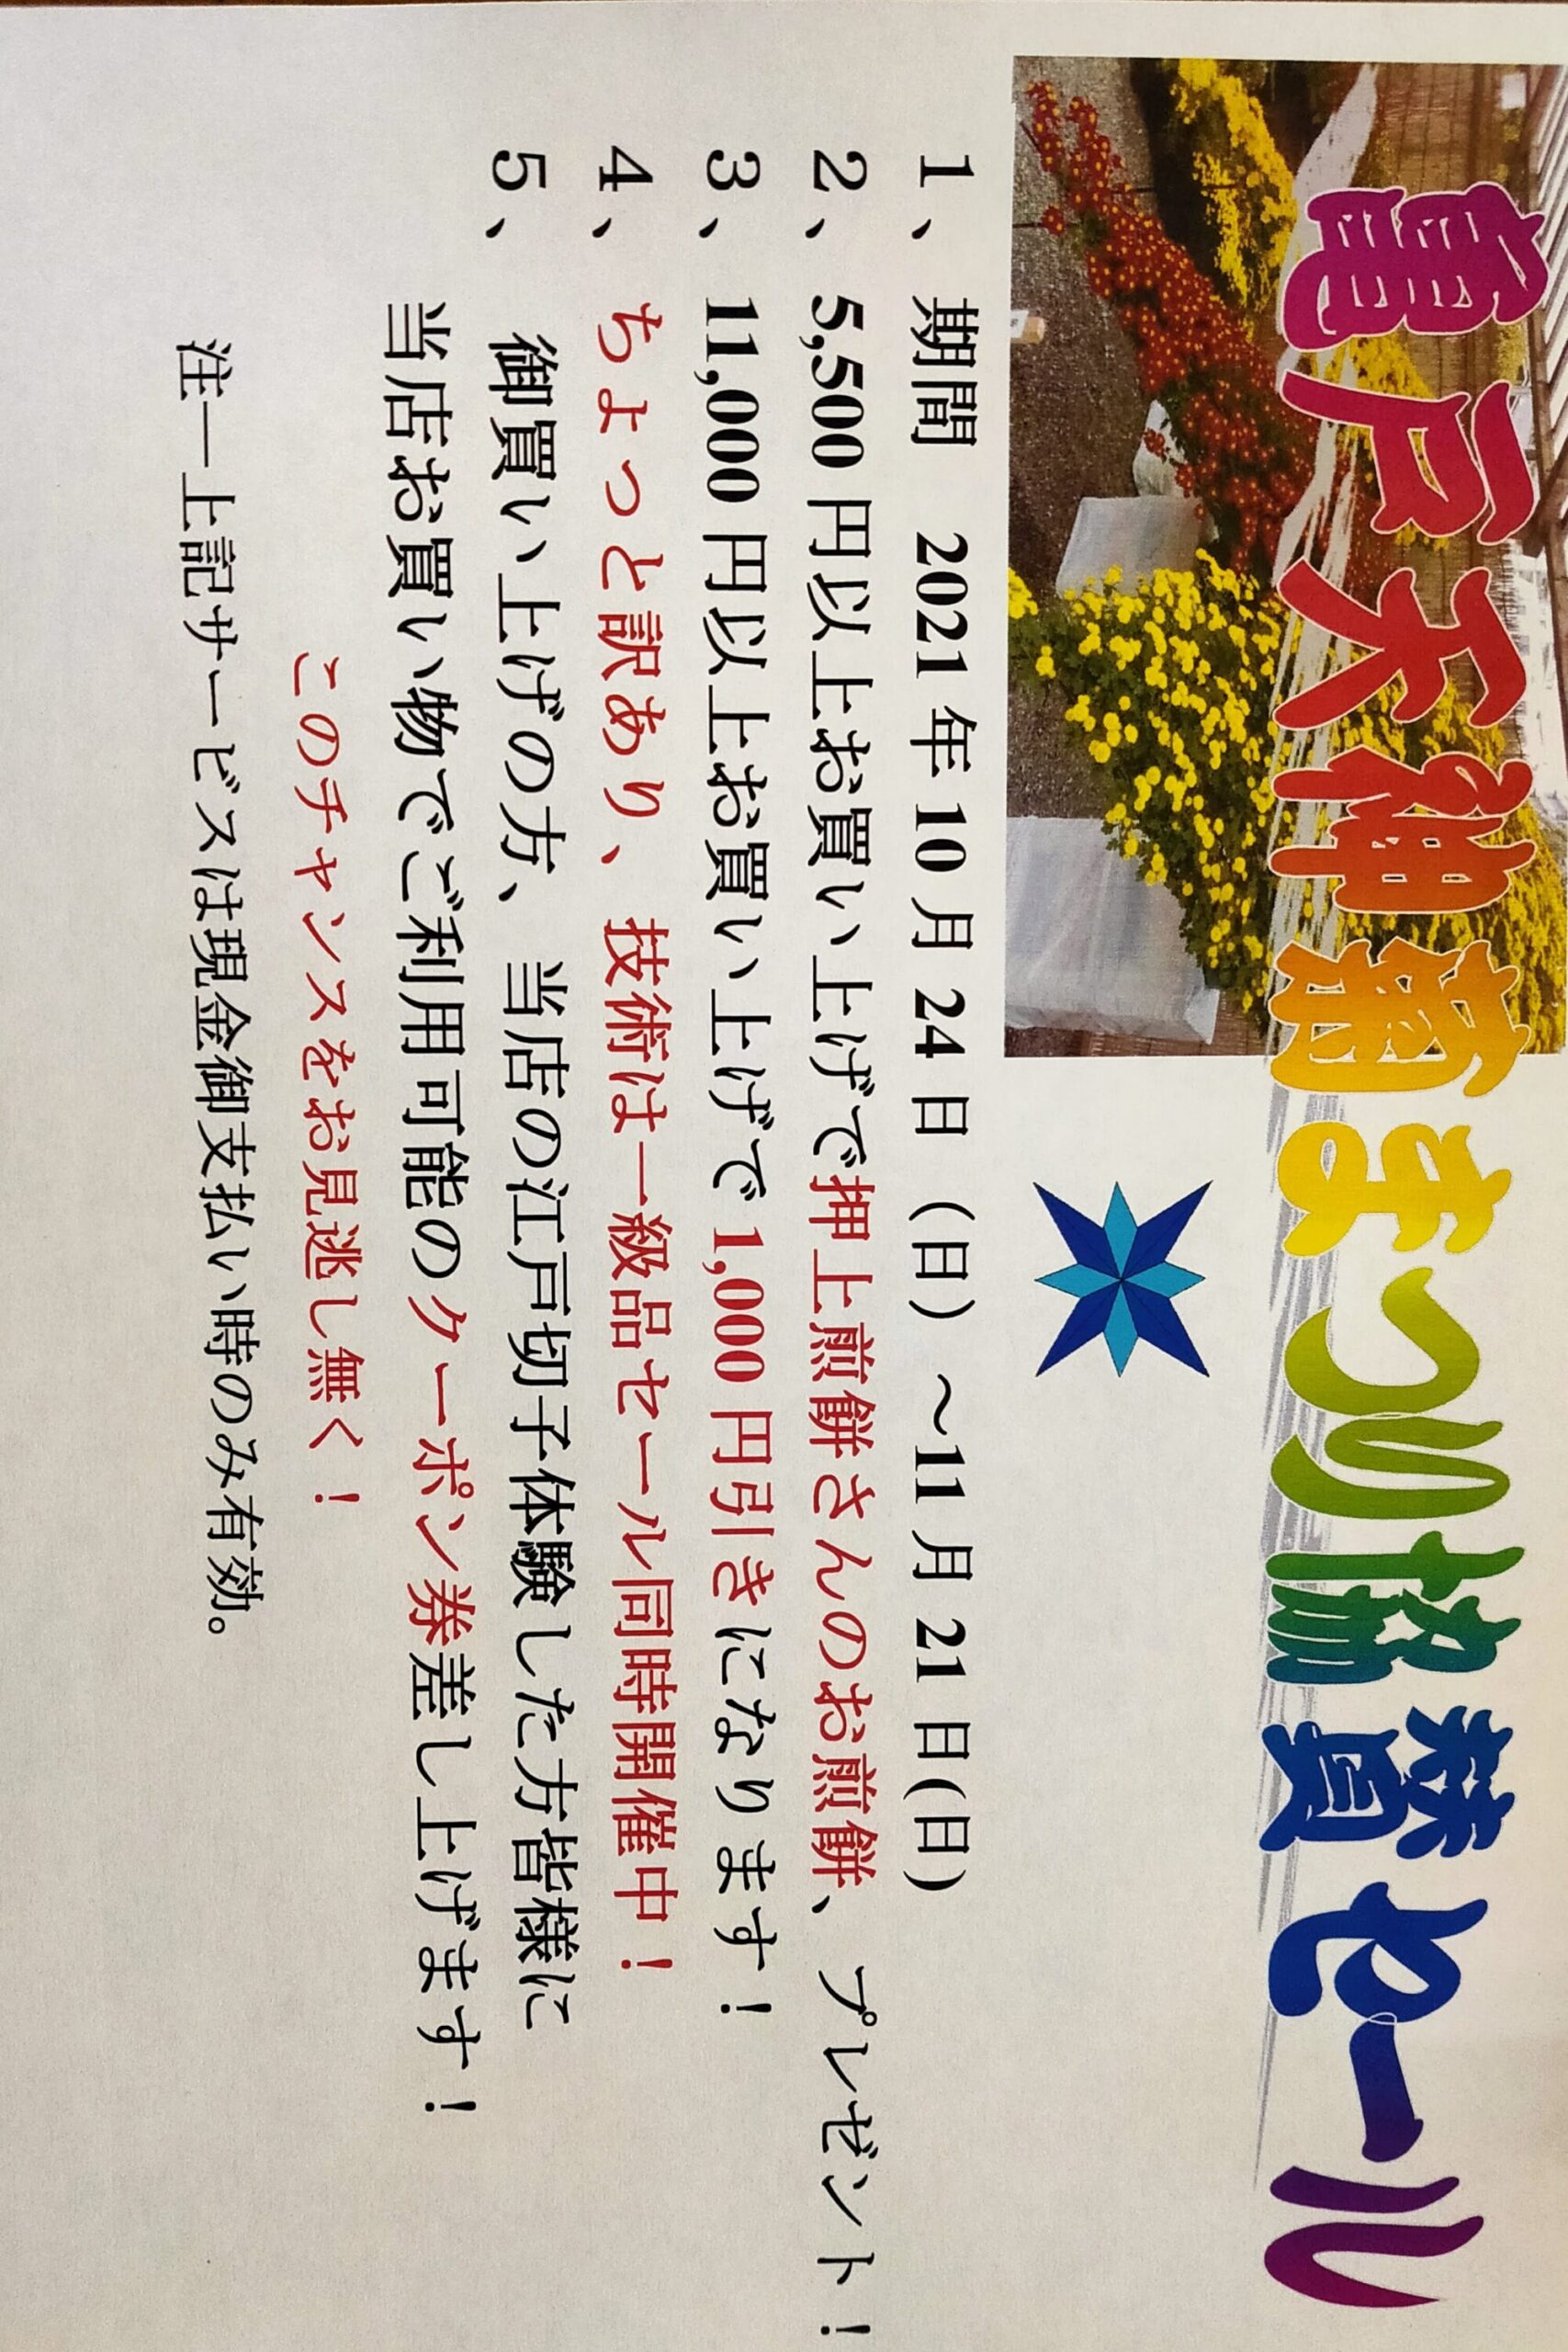 亀戸天神菊まつり協賛セール
1、期間　2021年10月24日（日）～11月21日(日)
2、5,500円以上お買い上げで押上煎餅さんのお煎餅、プレゼント！
3、11,000円以上お買い上げで1,000円引きになります！
4、ちょっと訳あり、技術は一級品セール同時開催中！
5、　御買い上げの方、当店の江戸切子体験した方皆様に
当店お買い物でご利用可能のクーポン券差し上げます！
このチャンスをお見逃し無く！
注一上記サービスは現金御支払い時のみ有効。